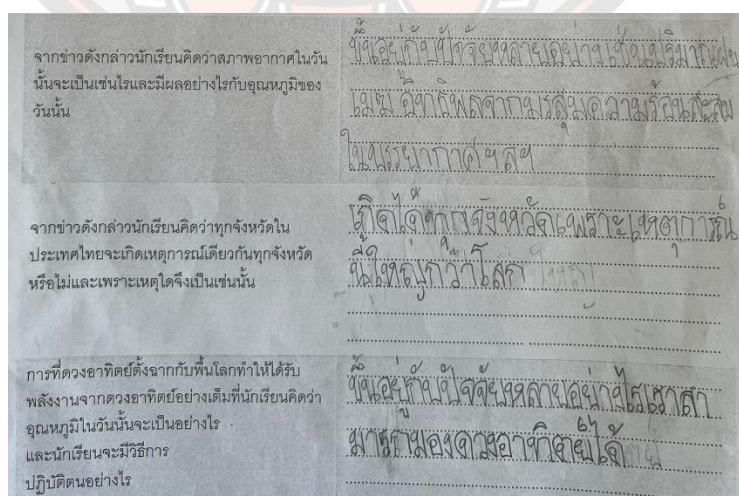 จากข่าวดังกล่าวนักเรียนคิดว่าสภาพอากาศในวัน
นั้นจะเป็นเช่นไรและมีผลอย่างไรกับอุณหภูมิของ
วันนั้น
ขึ้นอยู่กับปัจจัยหลายอย่างเช่นปริมาณฝน
เมฆ อิทธิพลจากมรสุมความร้อนสะสม
ในบรรยากาศฯลฯ
จากข่าวดังกล่าวนักเรียนคิดว่าทุกจังหวัดใน
ประเทศไทยจะเกิดเหตุการณ์เดียวกันทุกจังหวัด
หรือไม่และเพราะเหตุใดจึงเป็นเช่นนั้น
เกิดได้ทุกจังหวัดเพราะเหตุการณ์
นี้ใหญ่กว่าโลก
การที่ดวงอาทิตย์ตั้งฉากกับพื้นโลกทำให้ได้รับ
พลังงานจากดวงอาทิตย์อย่างเต็มที่นักเรียนคิดว่า
อุณหภูมิในวันนั้นจะเป็นอย่างไร
และนักเรียนจะมีวิธีการ
ปฏิบัติตนอย่างไร
ขึ้นอยู่กับปัจจัยหลายอย่างไรเราสา
มารถมองดวงอาทิตย์ได้